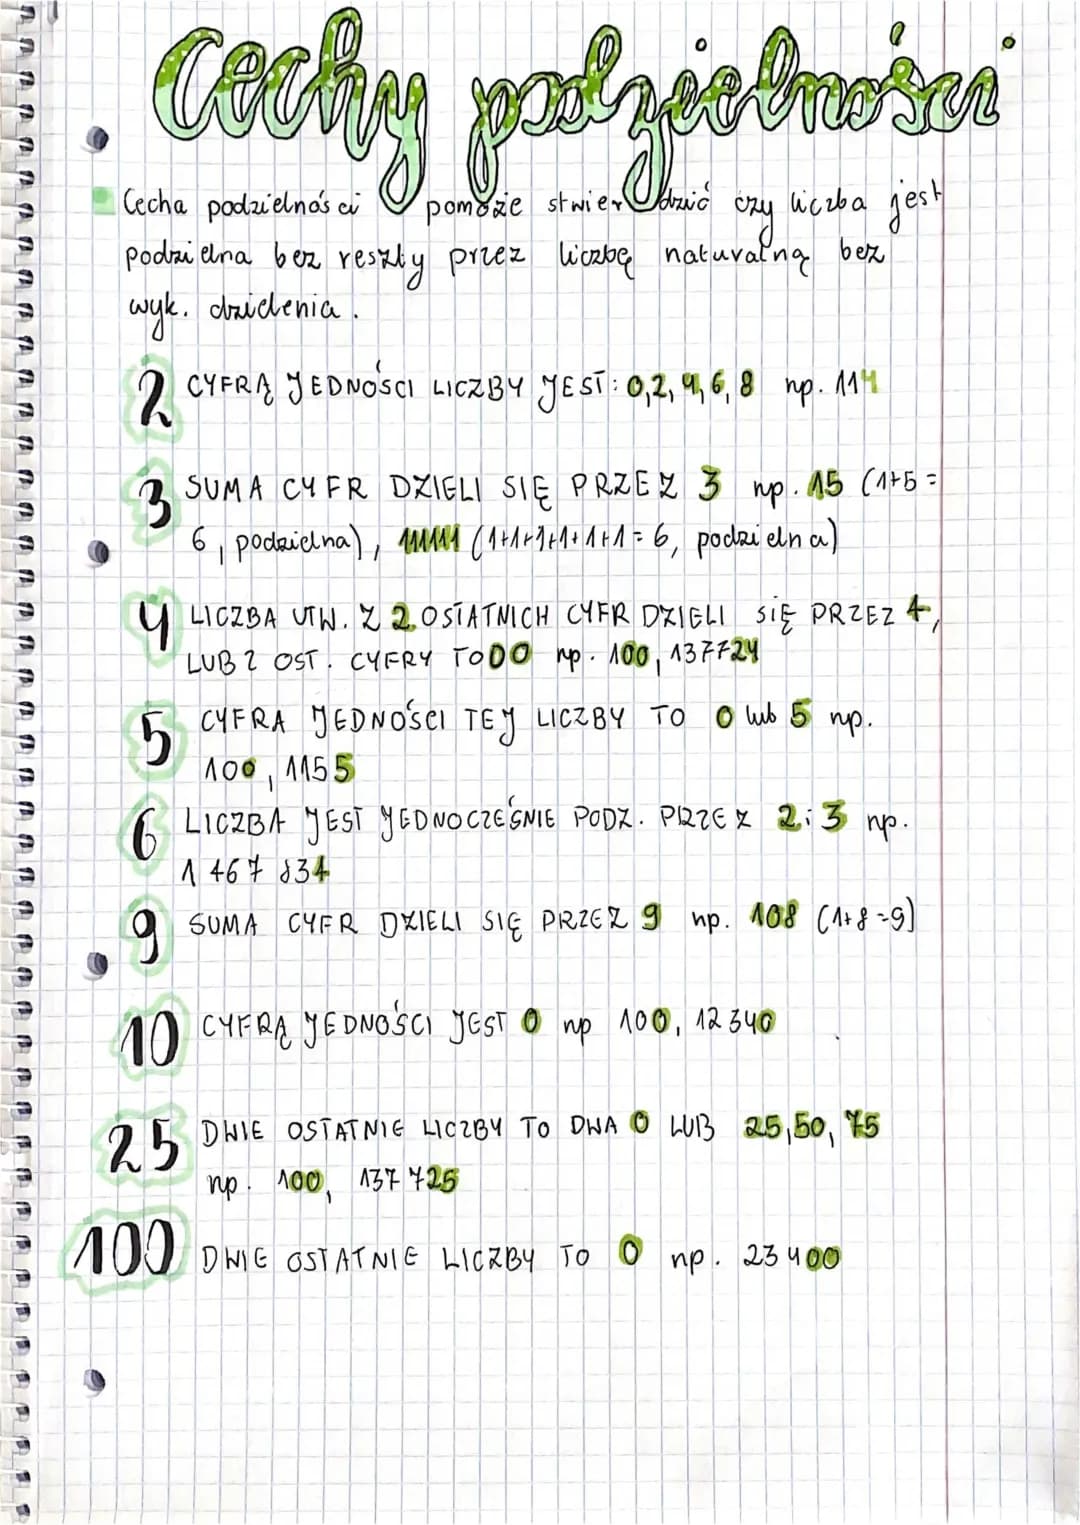 Cechy podzielności
Cecha podzielności pomoże stwierdzić czy liczba jest
podzielna bez reszty przez liczbę naturalną bez
wyk. dzielenia.
2 CYFRĄ JEDNOŚCI LICZBY JEST: 0,2,4,6,8 np. 114
3 SUMA CYFR DZIELI SIĘ PRZEZ 3 np. 15 (1+5=
6, podzielna), 111111 (1+1+1+1+1+1=6, podzielna)
4 LICZBA UTW. Z 2 OSTATNICH CYFR DZIELI SIĘ PRZEZ 4,
LUB 2 OST. CYFRY TO 00 np. 100, 137724
5 CYFRA JEDNOŚCI TEJ LICZBY TO 0 lub 5 np.
100, 1155
6 LICZBA JEST JEDNOCZEŚNIE PODZ. PRZEZ 2 i 3 np.
1 467 834
9 SUMA CYFR DZIELI SIĘ PRZEZ 9 np. 108 (1+8=9)
10 CYFRĄ JEDNOŚCI JEST 0 np 100, 12340
25 DWIE OSTATNIE LICZBY TO DWA 0 LUB 25,50,75
np. 100, 137 725
100 DWIE OSTATNIE LICZBY TO 0 np. 23 400